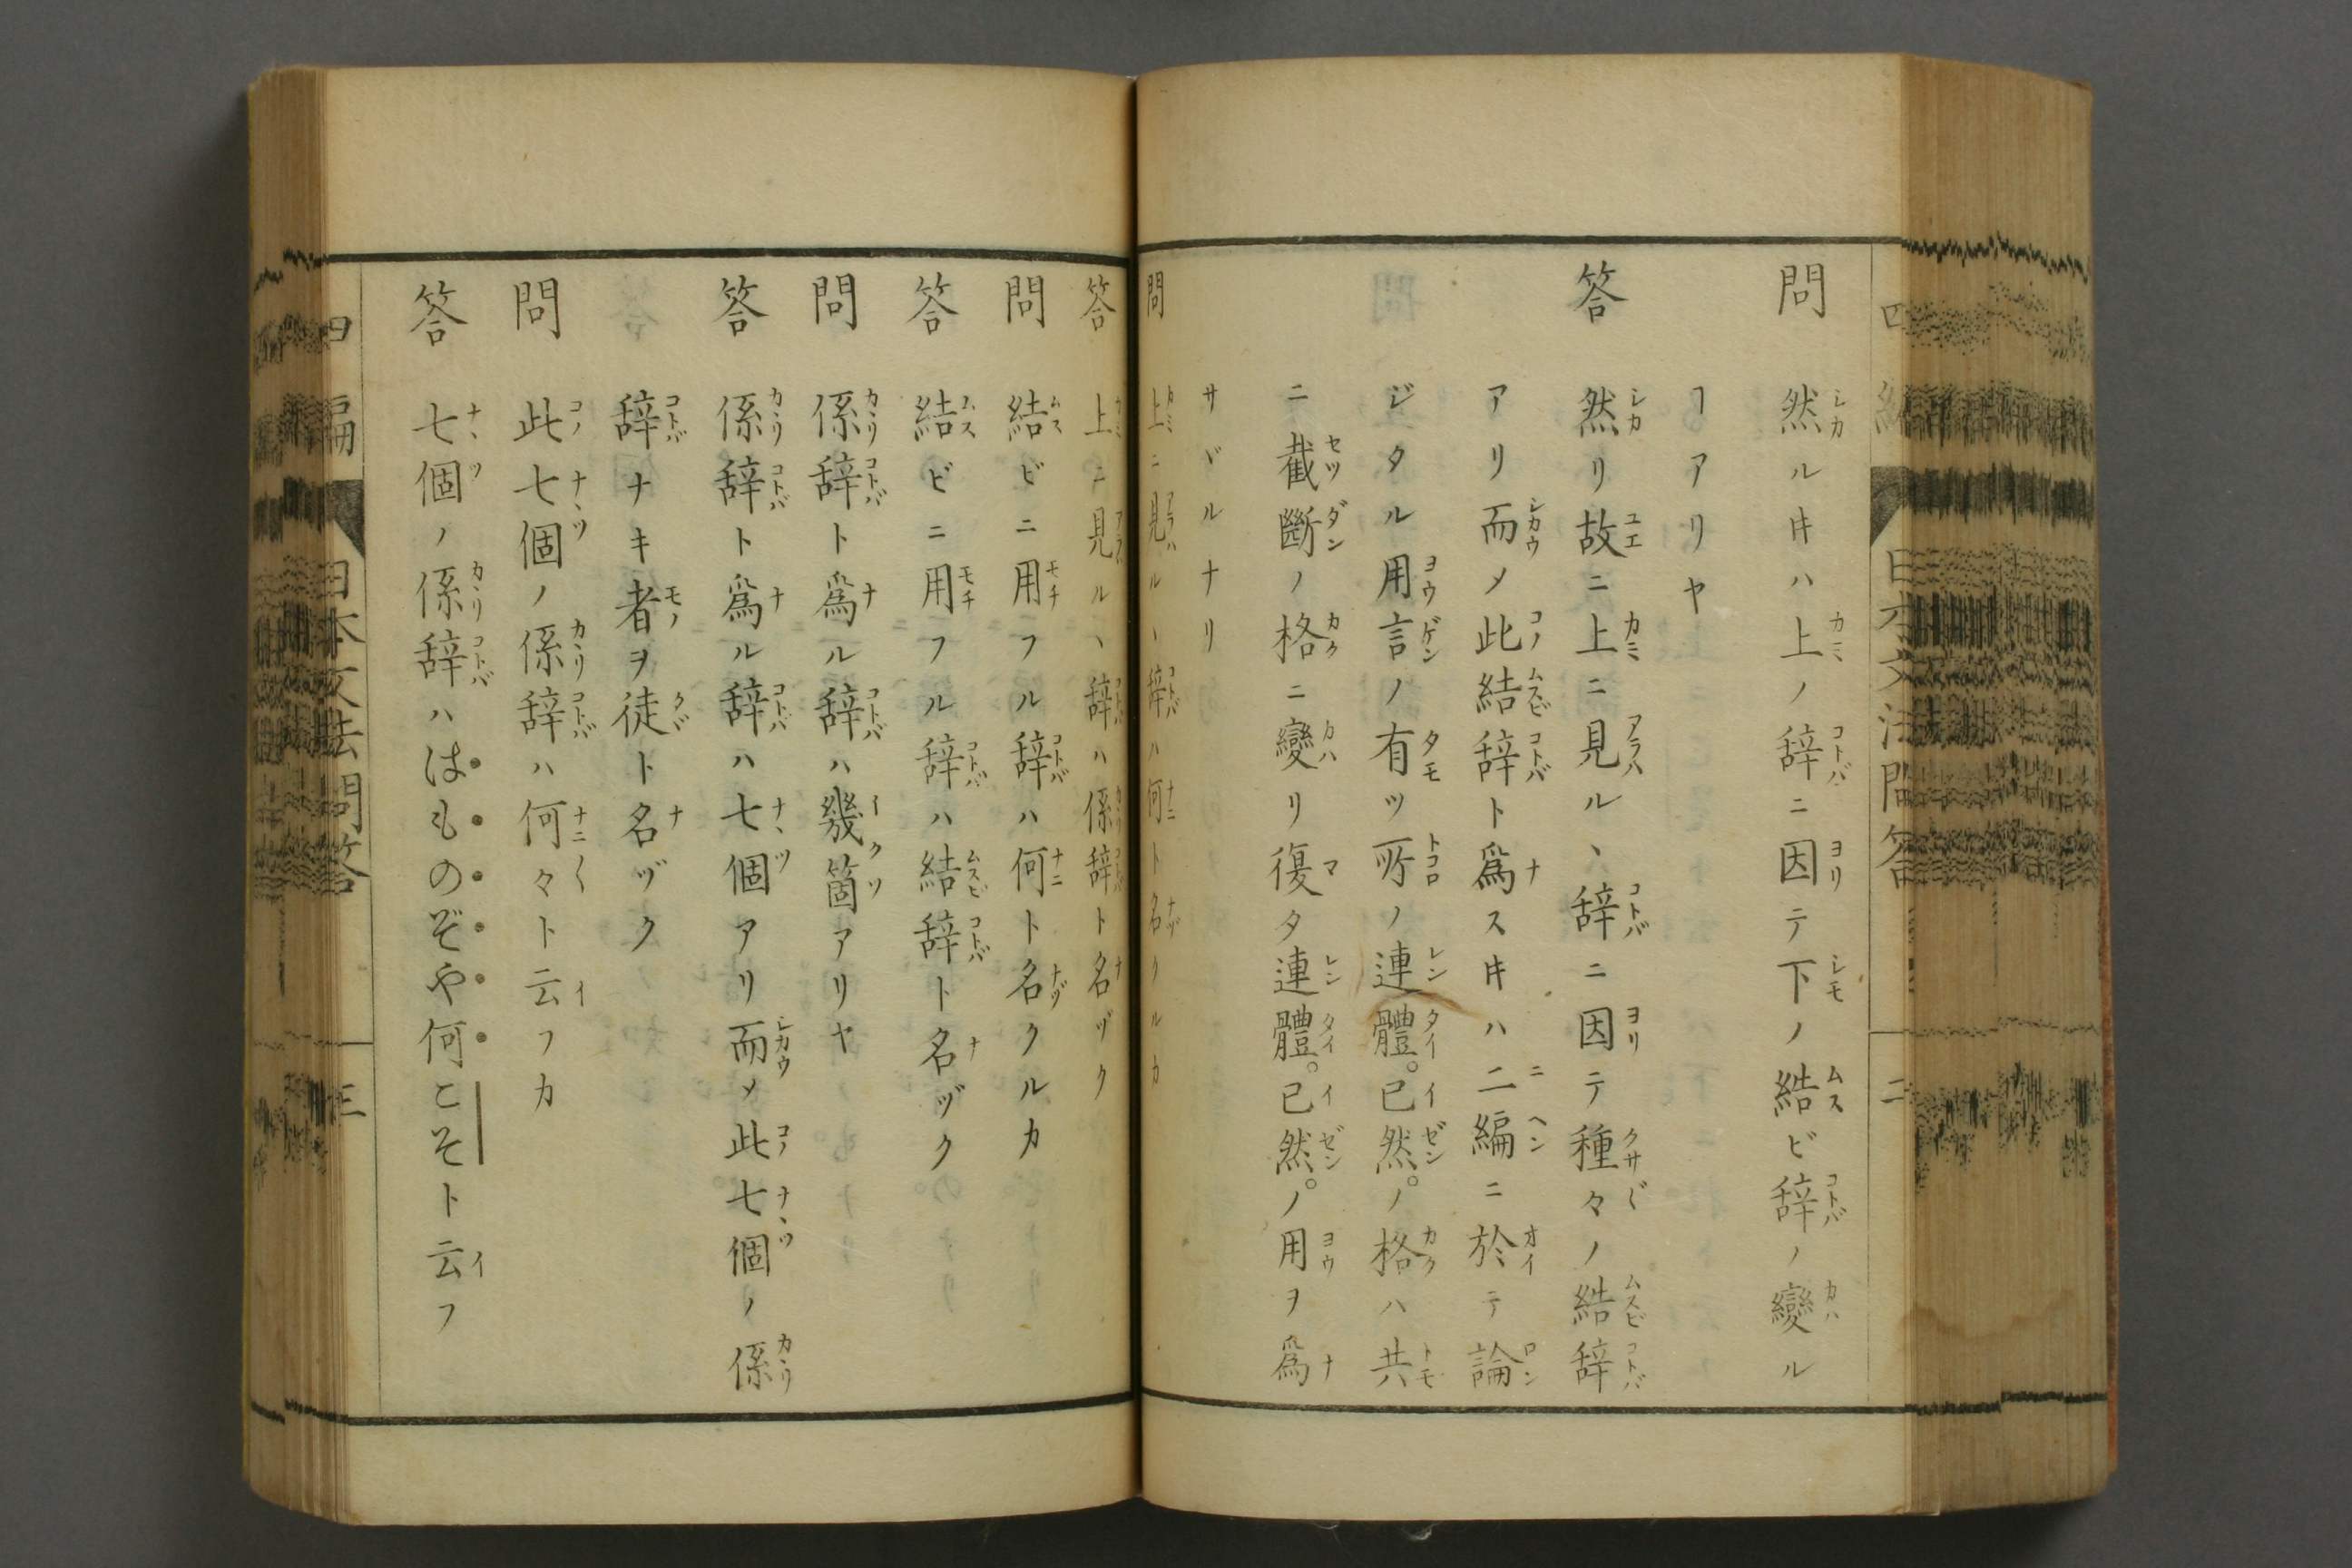 問 然ル𪜈ハ上ノ辞ニ因テ下ノ結ビ辞ノ變ル
ヿアリヤ
答 然リ故ニ上ニ見ルヽ辞ニ因テ種々ノ結辞
アリ而〆此結辞ト爲スキハ二編ニ於テ論
ジタル用言ノ有ツ所ノ連體。已然。ノ格ハ共
ニ截斷ノ格ニ變リ復タ連體。已然。ノ用ヲ爲
サヾルナリ
問 上ニ見ルヽ辞ハ何ト名クルカ
答 上ニ見ルヽ辞ハ係辞ト名ヅク
問 結ビニ用フル辞ハ何ト名クルカ
答 結ビニ用フル辞ハ結辞ト名ヅク
問 係辞ト爲ル辞ハ幾箇アリヤ
答 係辞ト爲ル辞ハ七個アリ而〆此七個ノ係
辞ナキ者ヲ徒ト名ヅク
問 此七個ノ係辞ハ何々ト云フカ
答 七個ノ係辞ハはものぞや何こそト云フ
四編 日本文法問答 三